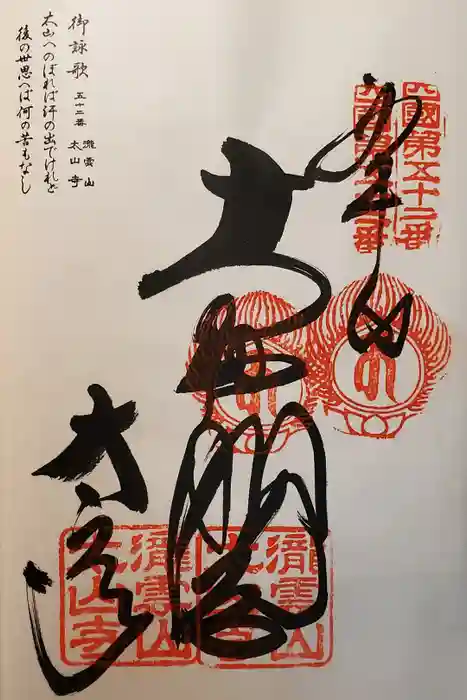 奉納
四國第五十二番
四國第五十二番
大悲閣
太山寺
瀧雲山
太山寺
瀧雲山
太山寺
御詠歌 五十二番 瀧雲山 太山寺
太山へのぼれば汗の出でけれど
後の世思へば何の苦もなし